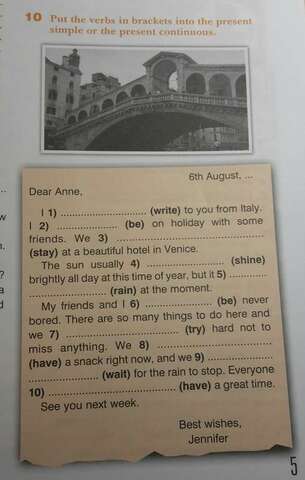 10 Put the verbs in brackets into the present
simple or the present continuous.
6th August, ...
Dear Anne,
I 1) ........................... (write) to you from Italy.
I 2) ........................... (be) on holiday with some
friends. We 3) ...........................
(stay) at a beautiful hotel in Venice.
The sun usually 4) ........................... (shine)
brightly all day at this time of year, but it 5) ............
........................... (rain) at the moment.
My friends and I 6) ........................... (be) never
bored. There are so many things to do here and
we 7) ........................... (try) hard not to
miss anything. We 8) ...........................
(have) a snack right now, and we 9) ...................
........................... (wait) for the rain to stop. Everyone
10) ........................... (have) a great time.
See you next week.
Best wishes,
Jennifer
5